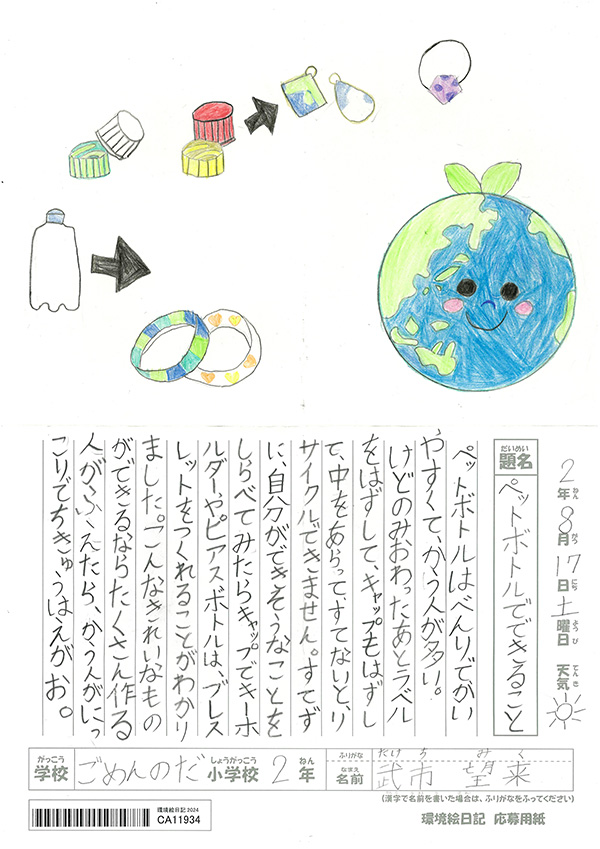 2年8月17日土曜日 天気
ねん がつ にち ようび てんき
だいめい
題名
ペットボトルでできること
ペットボトルはべんりでかい
やすくて、かう人が多い。
けどのみおわったあとラベル
をはずして、キャップもはずし
て、中をあらって、すてないと、リ
サイクルできません。すてず
に、自分ができそうなことを
しらべてみたらキャップでキーホ
ルダーやピアスボトルは、ブレス
レットをつくれることがわかり
ました。こんなきれいなもの
ができるならたくさん作る
人がふえたら、かう人がにっ
こりでちきゅうはえがお。
がっこう しょうがっこう ねん
学校 ごめんのだ小学校 2年
ふりがな たけち みく
なまえ
名前 武市 望来
(漢字で名前を書いた場合は、ふりがなをふってください)
環境絵日記2024
CA11934
環境絵日記 応募用紙